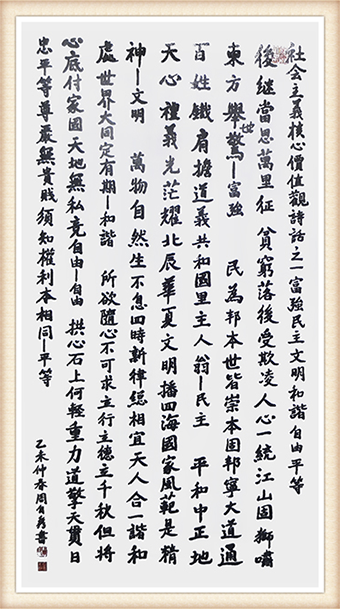 社会主義核心價值觀詩話之一富強民主文明和諧自由平等
後继當思萬里征 貧窮落後受欺凌人心一統江山固獅嘯
東方舉世驚—富強 民為邦本世皆崇本固邦寧大道通
百姓鐵肩擔道義共和國里主人翁—民主 平和中正地
天心禮義光茫耀北辰華夏文明播四海國家風範是精
神—文明 萬物自然生不息四時新律總相宜天人合一諧和
處世界大同定有期—和諧 所欲隨心不可求立行立德立千秋但將
心底付家國天地無私竟自由—自由 拱心石上何輕重力道擎天貫日
忠平等尊嚴無貴賤須知權利本相同—平等
乙未仲春周自書